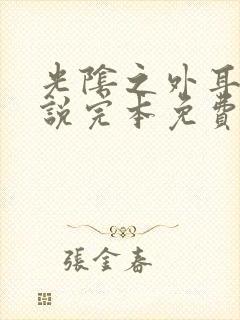 光陰之外耳
說完本免費
張金春